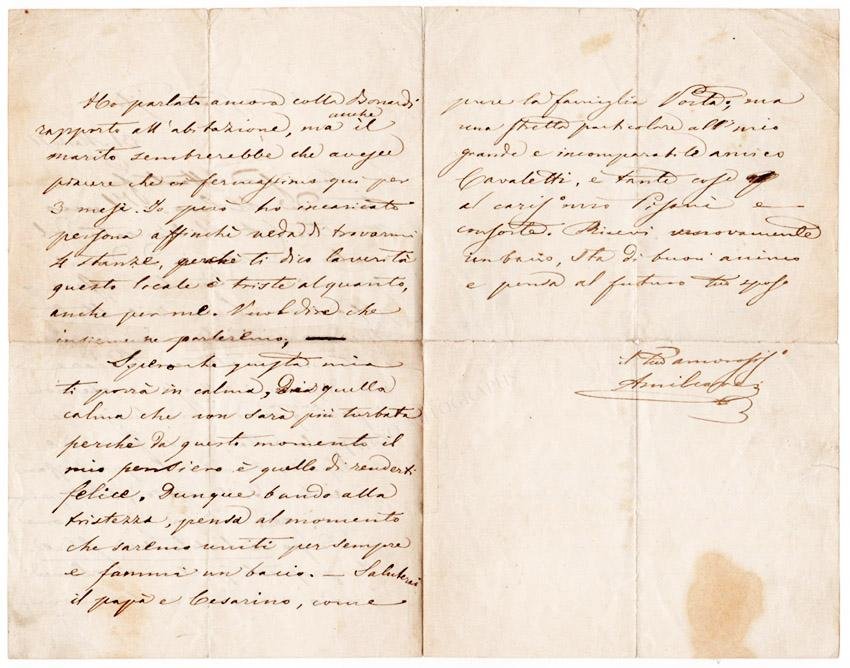 Ho parlato ancora colla Bonardi
rapporto all'abitazione, ma anche il
marito sembrerebbe che avesse
piacere che ci fermassimo qui per
3 mesi. Io però ho incaricato
persona affinchè veda di trovarmi
4 stanze, perchè ti dico la verità
questo locale è triste alquanto,
anche per me. Vuol dire che
insieme ne parleremo,
Spero che questa mia
ti porrà in calma, quella
calma che non sarà più turbata
perchè da questo momento il
mio pensiero è quello di renderti
felice. Dunque bando alla
tristezza, pensa al momento
che saremo uniti per sempre
e fammi un bacio. — Saluterai
il papà e Cesarino, come
pure la famiglia Porta; ma
una stretta particolare all' mio
grande e incomparabile amico
Cavaletti, e tante cose
al cariss.º mio Pisani e
consorte. Ricevi nuovamente
un bacio, sta di buon animo
e pensa al futuro tuo sposo
il tuo amoross.º